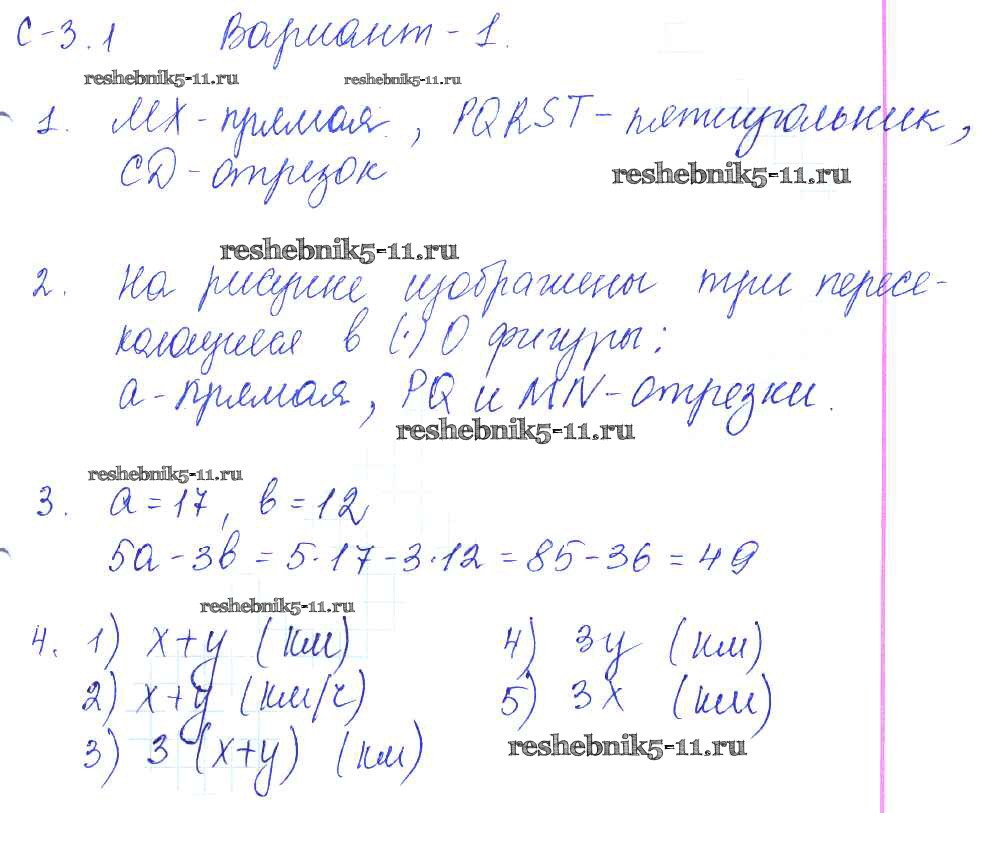 С-3.1 Вариант-1.
reshebnik5-11.ru reshebnik5-11.ru
1. MX-прямая, PQRST-пятиугольник,
CD-отрезок
reshebnik5-11.ru
reshebnik5-11.ru
2. На рисунке изображены три пересе-
кающиеся в (·) О фигуры:
а-прямая, PQ и MN-отрезки.
reshebnik5-11.ru
reshebnik5-11.ru
3. a = 17, в = 12
5а - 3в = 5·17 - 3·12 = 85 - 36 = 49
reshebnik5-11.ru
4. 1) x+y (км) 4) 3y (км)
2) x+y (км/ч) 5) 3x (км)
3) 3 (x+y) (км)
reshebnik5-11.ru